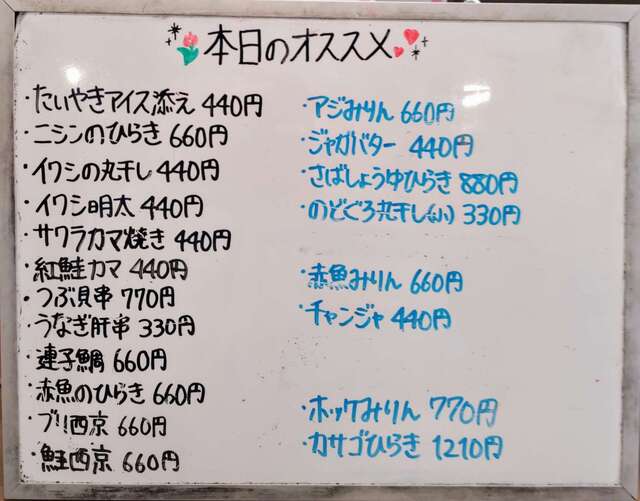 本日のオススメ
・たいやきアイス添え 440円
・ニシンのひらき 660円
・イワシの丸干し 440円
・イワシ明太 440円
・サワラカマ焼き 440円
・紅鮭カマ 440円
・つぶ貝串 770円
・うなぎ肝串 330円
・連子鯛 660円
・赤魚のひらき 660円
・ブリ西京 660円
・鮭西京 660円
・アジみりん 660円
・ジャガバター 440円
・さばしょうゆひらき 880円
・のどぐろ丸干し(小) 330円
・赤魚みりん 660円
・チャンジャ 440円
・ホッケみりん 770円
・カサゴひらき 1210円